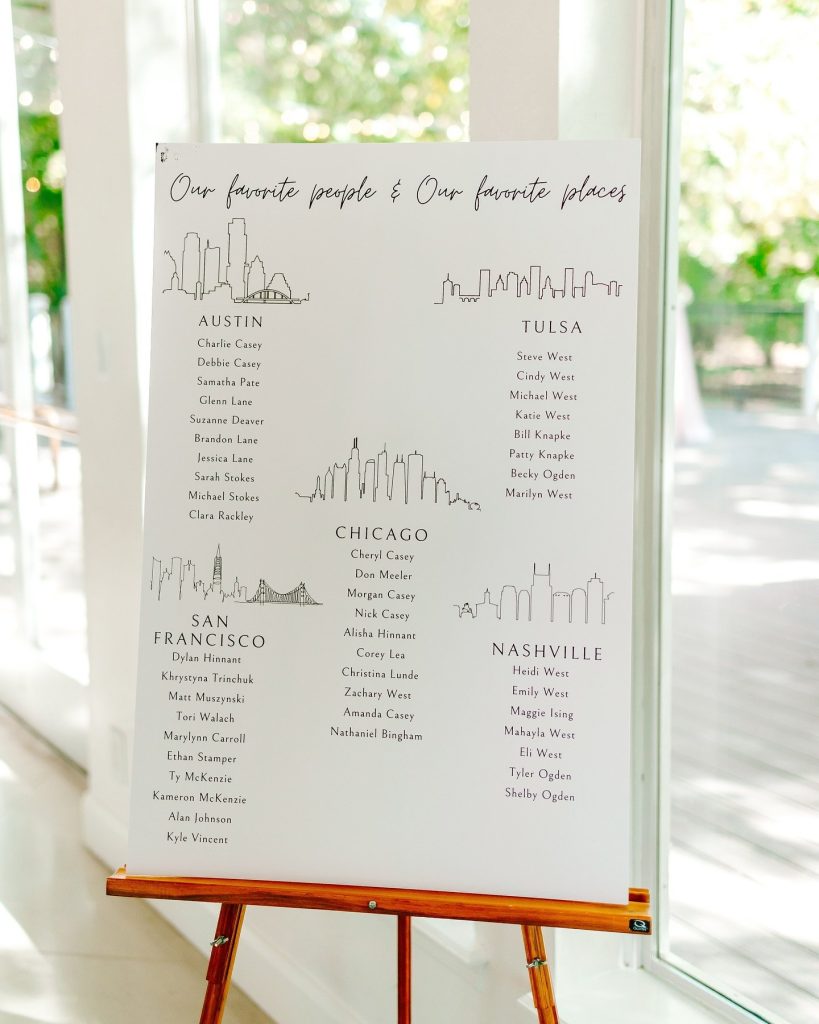 Our favorite people & Our favorite places
AUSTIN
Charlie Casey
Debbie Casey
Samatha Pate
Glenn Lane
Suzanne Deaver
Brandon Lane
Jessica Lane
Sarah Stokes
Michael Stokes
Clara Rackley
TULSA
Steve West
Cindy West
Michael West
Katie West
Bill Knapke
Patty Knapke
Becky Ogden
Marilyn West
CHICAGO
Cheryl Casey
Don Meeler
Morgan Casey
Nick Casey
Alisha Hinnant
Corey Lea
Christina Lunde
Zachary West
Amanda Casey
Nathaniel Bingham
SAN
FRANCISCO
Dylan Hinnant
Khrystyna Trinchuk
Matt Muszynski
Tori Walach
Marylynn Carroll
Ethan Stamper
Ty McKenzie
Kameron McKenzie
Alan Johnson
Kyle Vincent
NASHVILLE
Heidi West
Emily West
Maggie Ising
Mahayla West
Eli West
Tyler Ogden
Shelby Ogden